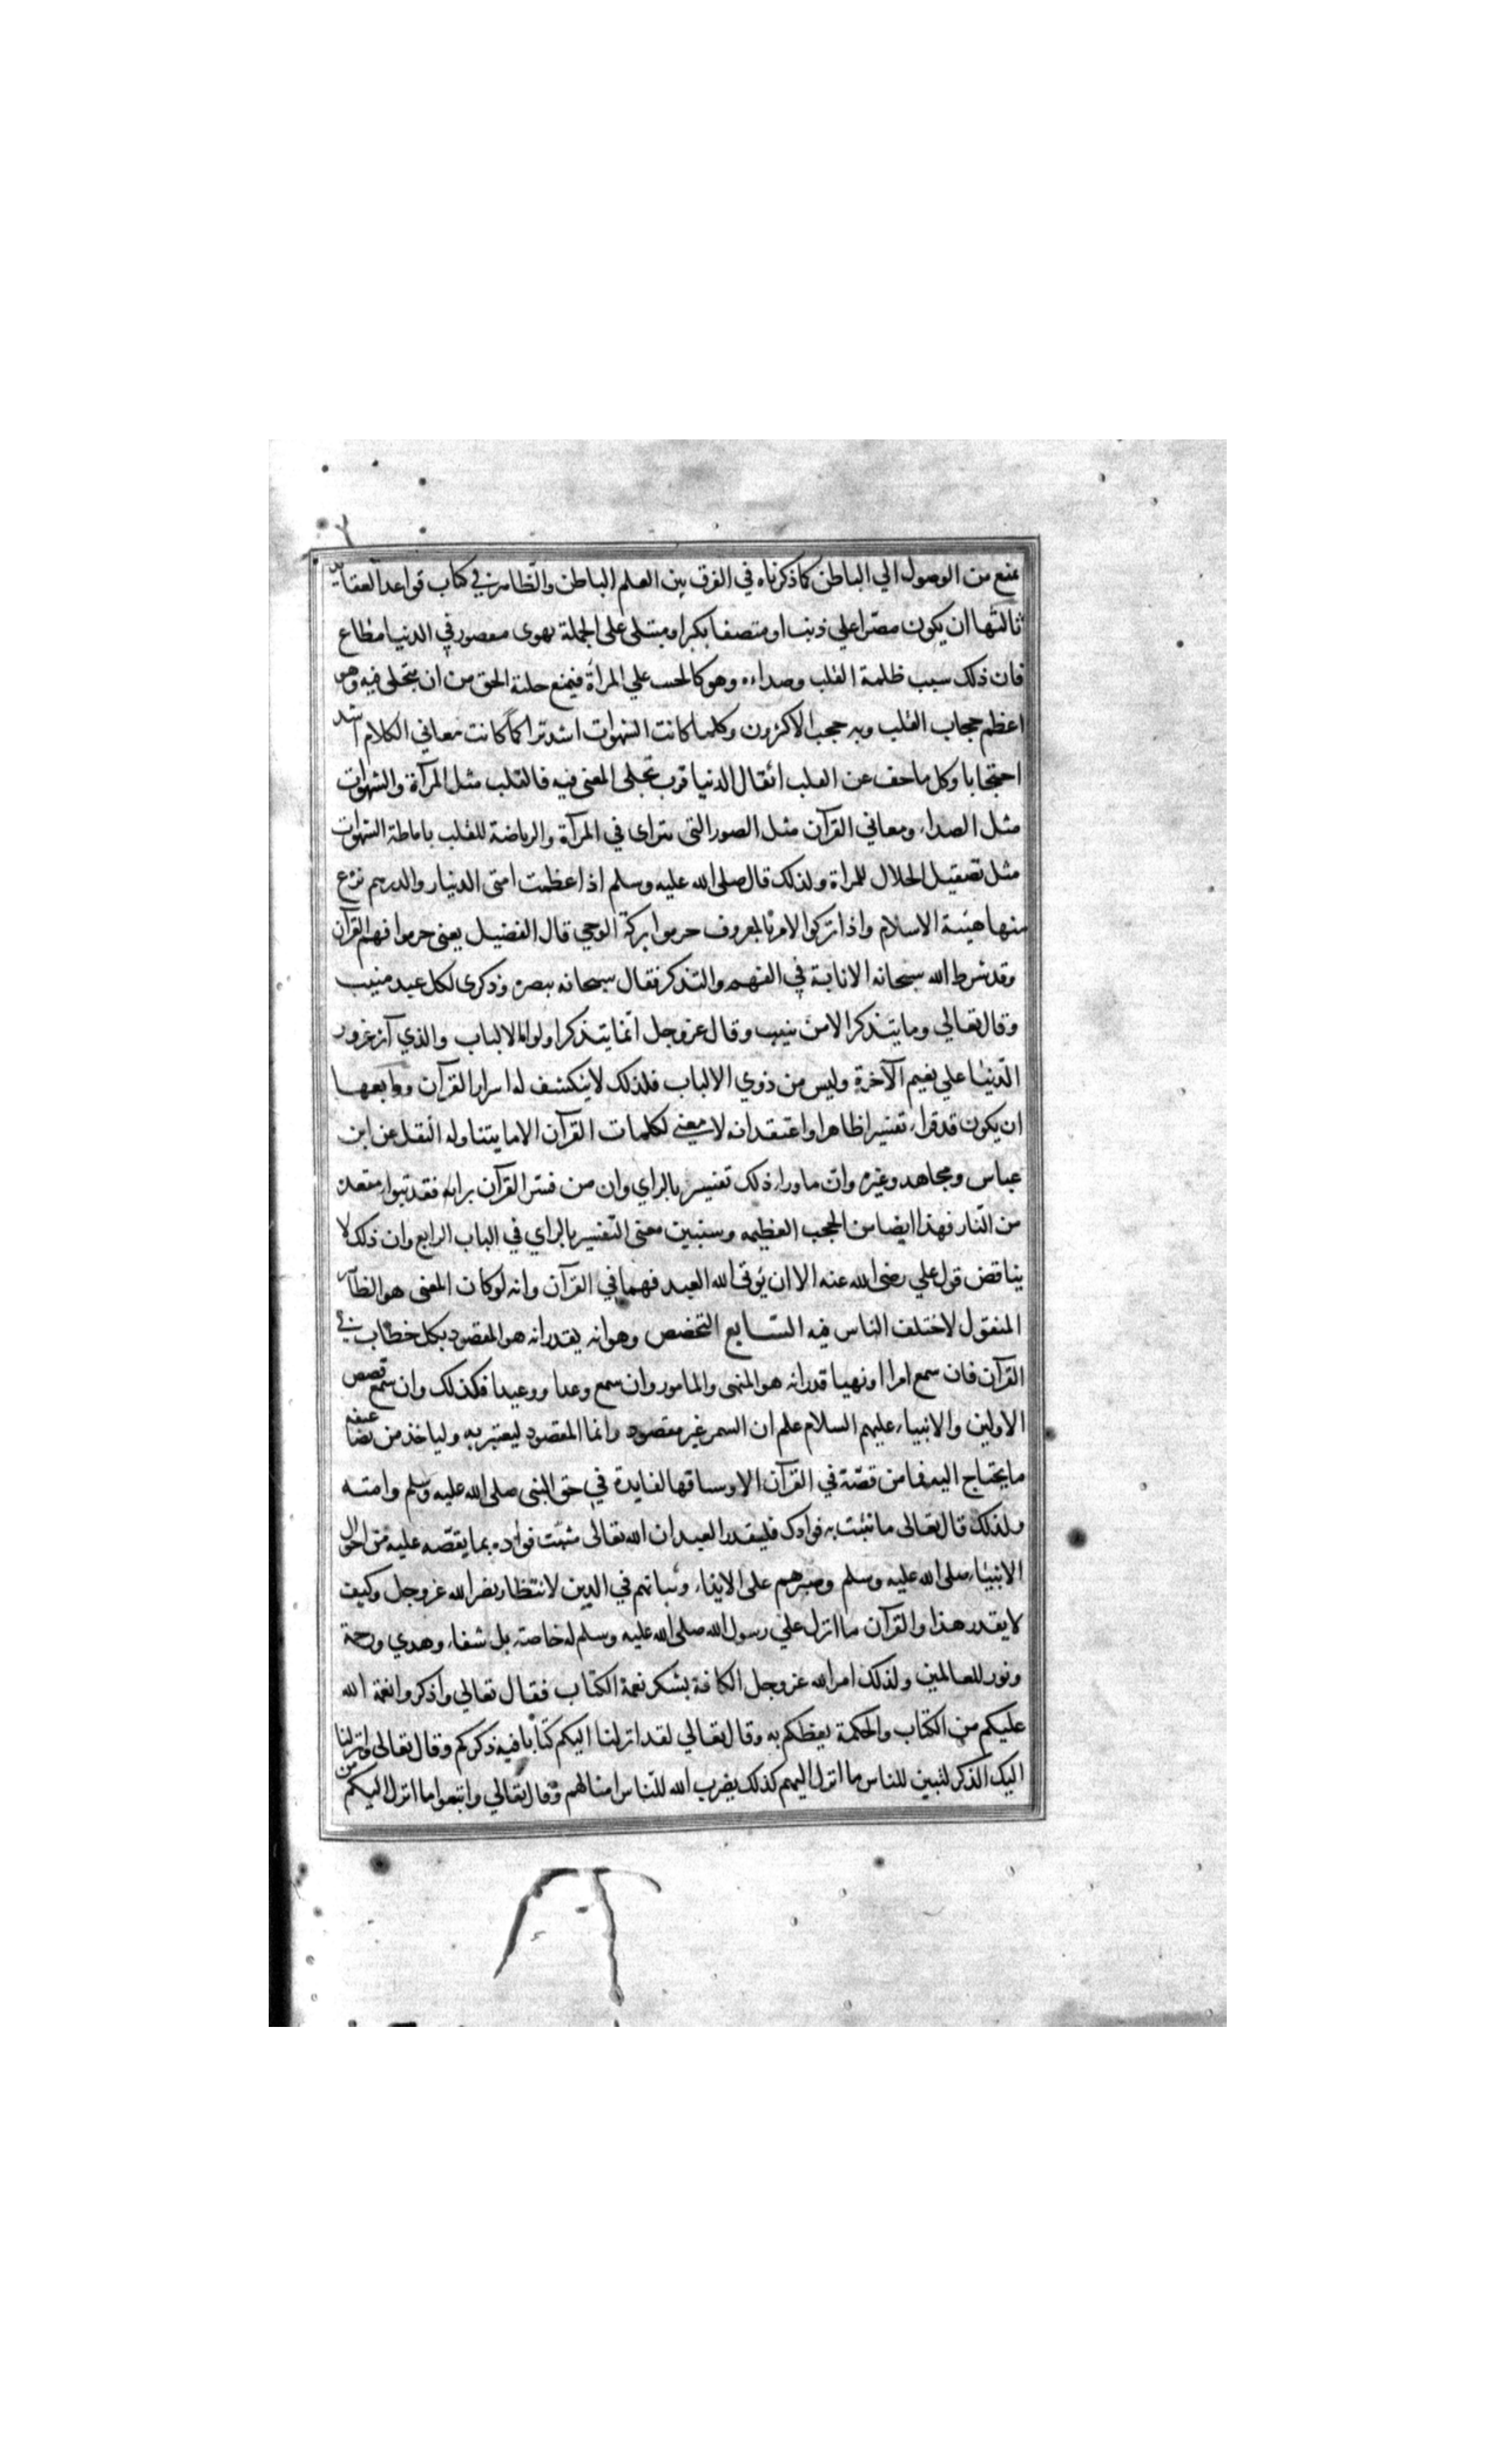 يمنع من الوصول الي الباطن كما ذكرناه في الفرق بين العلم الباطن والظاهر في كتاب قواعد العقايد
ثالثها ان يكون مصرا علي ذنب او متصفا بكبر او مبتلى على الجملة بهوى في الدنيا مطاع
فان ذلك سبب ظلمة القلب وصداءه وهو كالحسب علي المرآة فيمنع حلية الحق من ان يتجلى فيه وهو
اعظم حجاب القلب وبه حجب الاكثرون وكلما كانت الشهوات اشد تراكما كانت معاني الكلام اشد
احتجابا وكل ما خف عن القلب اثقال الدنيا قرب تجلى المعنى فيه فالقلب مثل المرآة والشهوات
مثل الصداء ومعاني القرآن مثل الصور التى تتراى في المرآة والرياضة للقلب باماطة الشهوات
مثل تصقيل الجلال للمراة ولذلك قال صلى الله عليه وسلم اذا عظمت امتى الدينار والدرهم نزع
منها هيبة الاسلام واذا تركوا الامر بالمعروف حرموا بركة الوحي قال الفضيل يعنى حرموا فهم القرآن
وقد شرط الله سبحانه الانابة في الفهم والتذكر فقال سبحانه تبصرة وذكرى لكل عبد منيب
وقال تعالي وما يتذكر الا من ينيب وقال عز وجل انما يتذكر اولوا الالباب والذي آثر غرور
الدنيا علي نعيم الآخرة وليس من ذوي الالباب فلذلك لا ينكشف له اسرار القرآن ورابعها
ان يكون قد قراء تفسيرا ظاهرا واعتقد انه لا معنى لكلمات القرآن الا ما يتناوله النقل عن ابن
عباس ومجاهد وغيره وان ما وراء ذلك تفسير بالراي وان من فسر القرآن برايه فقد تبوا مقعده
من النار فهذا ايضا من الحجب العظيمه وسنبين معنى التفسير بالراي في الباب الرابع وان ذلك لا
يناقض قول علي رضى الله عنه الا ان يؤتى الله العبد فهما في القرآن وانه لو كان المعنى هو الظاهر
المنقول لاختلف الناس فيه السابع التخصص وهو انه يقدر انه هو المقصود بكل خطاب في
القرآن فان سمع امرا او نهيا قدر انه هو المنهى والمامور وان سمع وعدا ووعيدا فكذلك وان سمع قصص
الاولين والانبياء عليهم السلام علم ان السمر غير مقصود وانما المقصود ليعتبر به ولياخذ من تضاعيفه
ما يحتاج اليه فما من قصة في القرآن الا وساقها لفايدة في حق النبى صلى الله عليه وسلم وامته
ولذلك قال تعالى ما نثبت به فوادك فليقدر العبد ان الله تعالى مثبت فواده بما يقصه عليه من احوال
الانبياء صلى الله عليه وسلم وصبرهم على الايذاء وثباتهم في الدين لانتظار نصر الله عز وجل وكيف
لا يقدر هذا والقرآن ما انزل علي رسول الله صلى الله عليه وسلم له خاصة بل شفاء وهدي ورحمة
ونور للعالمين ولذلك امر الله عز وجل الكافة بشكر نعمة الكتاب فقال تعالي واذكروا نعمة الله
عليكم من الكتاب والحكمة يعظكم به وقال تعالي لقد انزلنا اليكم كتابا فيه ذكركم وقال تعالى وانزلنا
اليك الذكر لتبين للناس ما انزل اليهم كذلك يضرب الله للناس امثالهم وقال تعالي واتبعوا ما انزل اليكم من